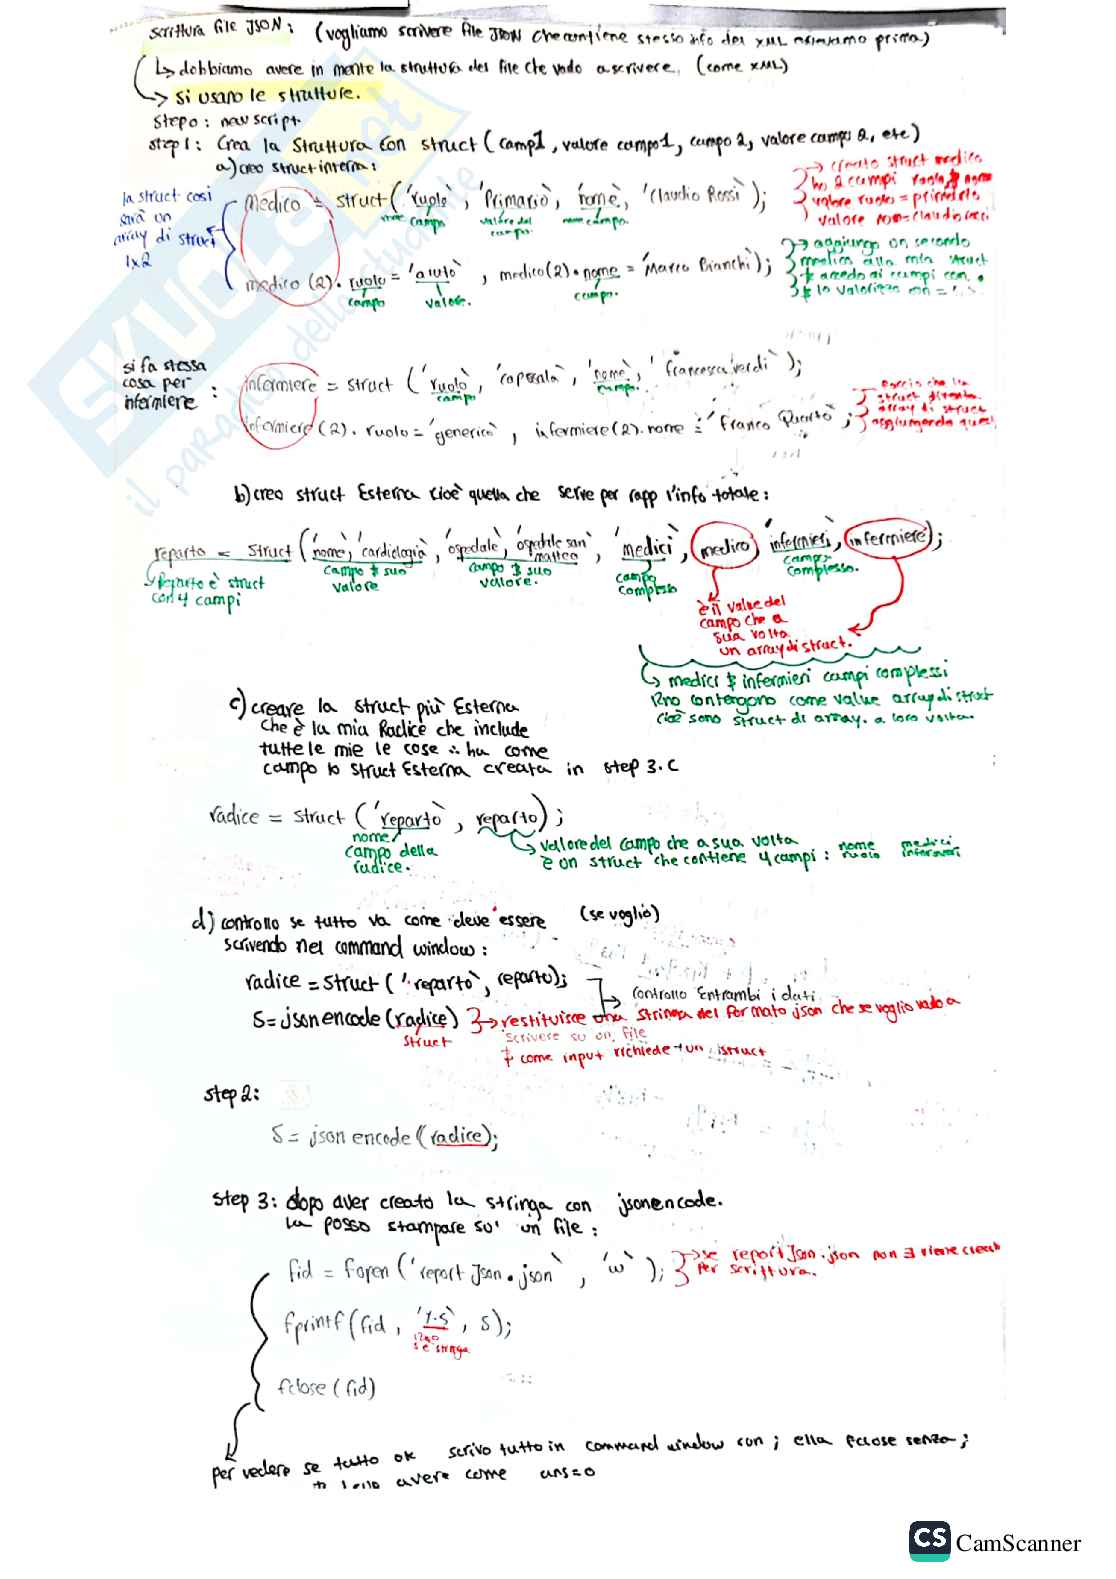 scrittura file JSON: (vogliamo scrivere file JSON che contiene stesse info del XML prima)
↳ dobbiamo avere in mente la struttura del file che vado a scrivere. (come XML)
→ si usano le strutture.
Step0: new script.
step1: Crea la Struttura con struct (camp1, valore campo1, campo 2, valore campo 2, etc)
a) creo struct interna:
la struct così
sarà un
array di struct
1x2
medico = struct('ruolo', 'Primario', 'nome', 'Claudio Rossi');
nome campo
valore del campo.
nome campo.
→ creato struct medico
ho 2 campi ruolo & nome
valore ruolo = primario
valore nome = claudio rossi
medico (2). ruolo = 'aiuto', medico(2). nome = 'Marco Bianchi');
campo
valore.
campo.
→ aggiungo un secondo
medico alla mia struct
& accedo ai campi con .
& lo valorizzo con = '..'
si fa stessa
cosa per :
infermiere
infermiere = struct ('ruolo', 'caposala', 'nome', 'Francesca Verdi');
campo
campo.
infermiere (2). ruolo = 'generico', infermiere(2). nome = 'Franco Quarto';
struct diventa
array di struct
aggiungendo
b) creo struct Esterna cioè quella che serve per rapp l'info totale:
reparto = struct ('nome', 'cardiologia', 'ospedale', 'ospedale san matteo', 'medici', medico, 'infermieri', infermiere);
↳ Reparto è struct
con 4 campi
campo & suo
valore
campo & suo
valore.
campo
complesso
campo
complesso.
è il value del
campo che a
sua volta
un array di struct.
↳ medici & infermieri campi complessi
contengono come value array di struct
cioè sono struct di array. a loro volta.
c) creare la struct più Esterna
che è la mia Radice che include
tutte le mie le cose ∴ ha come
campo lo struct Esterna creata in step 3.c
radice = struct ('reparto', reparto);
nome
campo della
radice.
↳ valore del campo che a sua volta
è un struct che contiene 4 campi : nome medici
ruolo infermieri
d) controllo se tutto va come deve essere (se voglio)
scrivendo nel command window:
radice = struct ('reparto', reparto);
→ controllo Entrambi i dati
S = jsonencode (radice)
struct
→ restituisce una stringa del formato json che se voglio vado a
scrivere su un file
& come input richiede un struct
step 2:
S = json encode (radice);
step 3: dopo aver creato la stringa con jsonencode.
la posso stampare su' un file :
fid = fopen ('report Json.json', 'w');
→ se reportJson.json non ∃ viene creato
per scrittura.
fprintf (fid, '%s', S);
se stringa
fclose (fid)
per vedere se tutto ok scrivo tutto in command window con ; ella fclose senza ;
avere come ans=0
SKUOLA.net
il paradiso dello studente
CS CamScanner